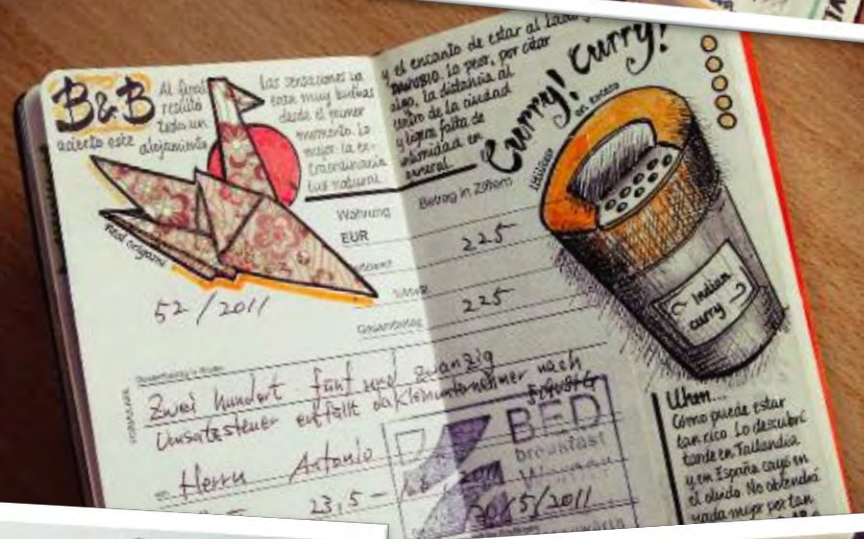 B&B
Al final
resultó
todo un
acierto este
alojamiento
Las sensaciones ya
eran muy buenas
desde el primer
momento. Lo
mejor: la ex-
traordinaria
luz natural
y el encanto de estar al lado
DANUBIO. Lo peor, por citar
algo, la distancia al
centro de la ciudad
y ligera falta de
intimidad en
general.
Curry! Curry!
en exceso
Real origami
Währung
Betrag in Ziffern
EUR
225
225
Gesamtbetrag
52/2011
Zwei hundert fünf und zwanzig
Umsatzsteuer entfällt da Kleinunternehmer nach
Herrn Antonio
23,5 -
BED
breakfast
20/5/2011
Indian
curry
Uhm...
Cómo puede estar
tan rico. Lo descubrí
tarde en Tailandia
y en España cayó en
el olvido. No obtendrá
nada mejor por tan